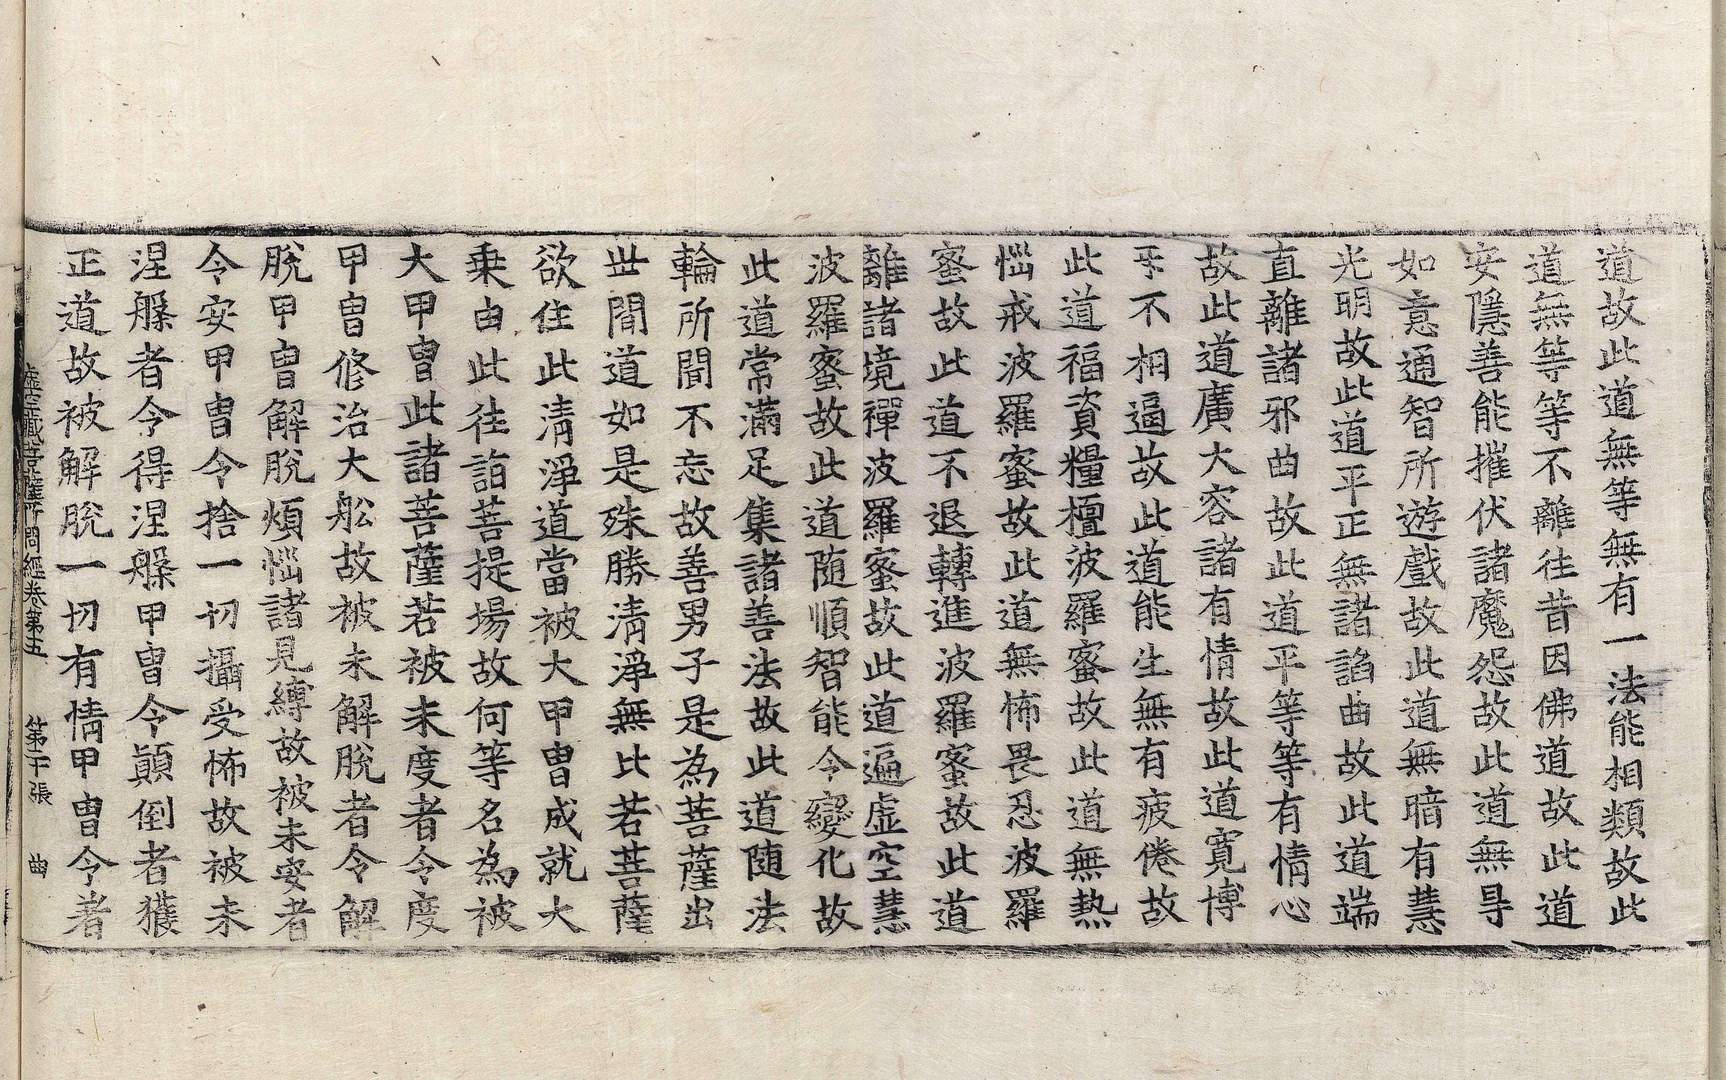 道故此道無等無有一法能相類故此
道無等等不離往昔因佛道故此道
安隱善能摧伏諸魔怨故此道無㝵
如意通智所遊戲故此道無暗有慧
光明故此道平正無諸諂曲故此道端
直離諸邪曲故此道平等等有情心
故此道廣大容諸有情故此道寬博
㸦不相逼故此道能生無有疲倦故
此道福資糧檀波羅蜜故此道無熱
惱戒波羅蜜故此道無怖畏忍波羅
蜜故此道不退轉進波羅蜜故此道
離諸境禪波羅蜜故此道遍虛空慧
波羅蜜故此道隨順智能令變化故
此道常滿足集諸善法故此道隨法
輪所聞不忘故善男子是為菩薩出
世間道如是殊勝清淨無比若菩薩
欲住此清淨道當被大甲冑成就大
乘由此往詣菩提場故何等名為被
大甲冑此諸菩薩若被未度者令度
甲冑修治大舩故被未解脫者令解
脫甲冑解脫煩惱諸見縛故被未安者
令安甲冑令捨一切攝受怖故被未
涅槃者令得涅槃甲冑令顛倒者獲
正道故被解脫一切有情甲冑令著
虛空藏菩薩所問經卷第五 第二十張 曲